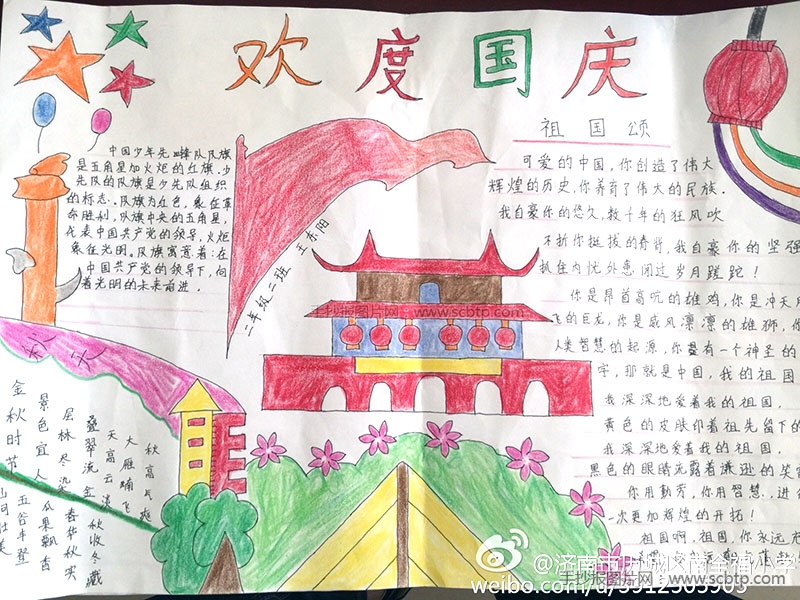 欢度国庆
中国少年先锋队队旗
是五角星加火炬的红旗.少
先队的队旗是少先队组织
的标志.队旗为红色,象征革
命胜利,队旗中央的五角星,
代表中国共产党的领导,火炬
象征光明。队旗寓意着:在
中国共产党的领导下,向
着光明的未来前进.
二年级二班 王东阳
祖国颂
可爱的中国,你创造了伟大
辉煌的历史,你养育了伟大的民族.
我自豪你的悠久,数十年的狂风吹
不折你挺拔的脊背,我自豪你的坚强
抓住内忧外患闯过岁月蹉跎!
你是昂首高吭的雄鸡,你是冲天
飞的巨龙,你是威风凛凛的雄狮,你
人类智慧的起源,你是有一个神圣的
字,那就是中国,我的祖国
我深深地爱着我的祖国.
黄色的皮肤印着祖先留下的
我深深地爱着我的祖国.
黑色的眼睛流露着谦逊的笑
你用勤劳,你用智慧,进
一次更加辉煌的开拓!
祖国啊,祖国,你永远充
秋天
秋高气爽
大雁南飞
天高云淡
叠翠流金 秋收冬藏
层林尽染 春华秋实
景色宜人 瓜果飘香
金秋时节 五谷丰登
手抄报图片网 www.scbtp.com
@济南市历城区
weibo.com/u/
手抄报图片网 www.scbtp.com